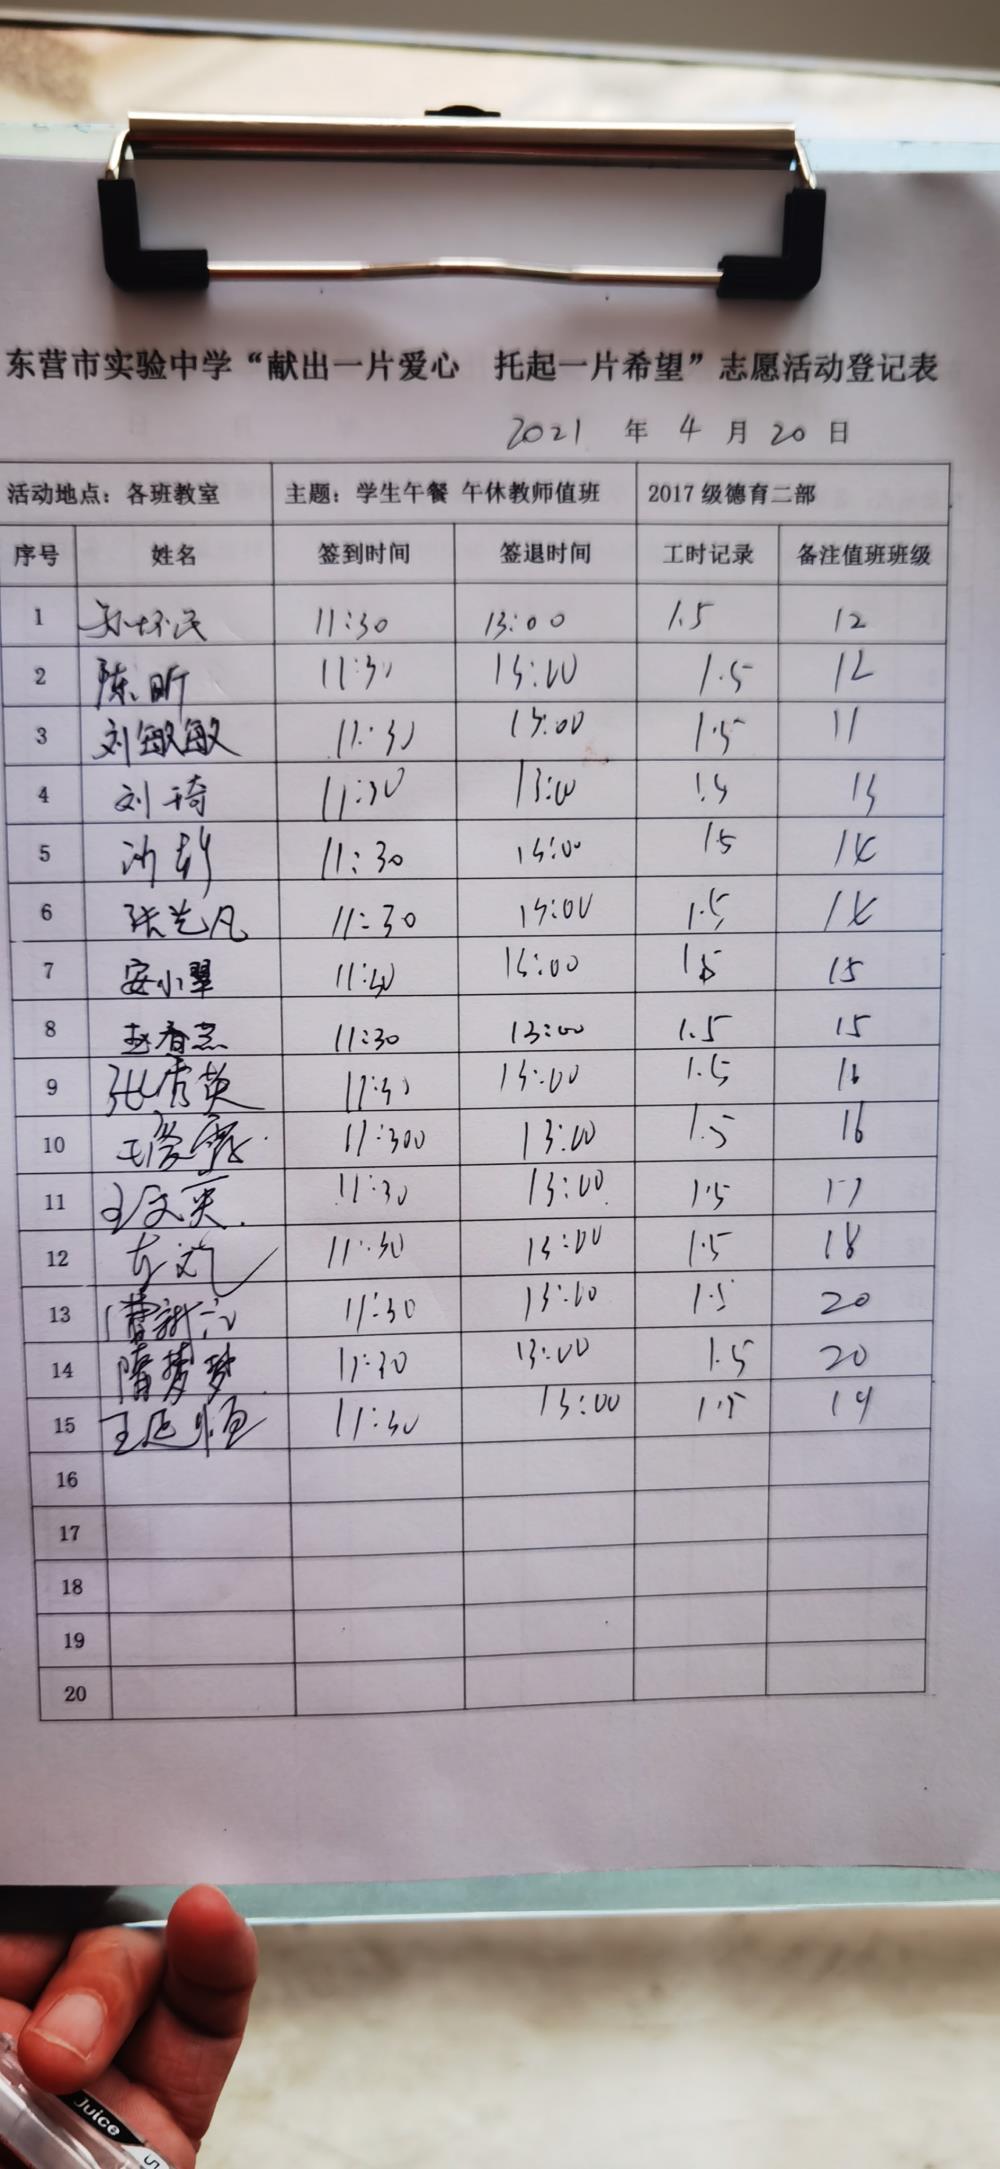 东营市实验中学“献出一片爱心 托起一片希望”志愿活动登记表
2021 年 4 月 20 日
活动地点：各班教室 主题：学生午餐 午休教师值班 2017 级德育二部
序号 姓名 签到时间 签退时间 工时记录 备注值班班级
1 11:30 13:00 1.5 12
2 陈昕 11:30 13:00 1.5 12
3 刘敏敏 11:30 13:00 1.5 11
4 刘琦 11:30 13:00 1.5 13
5 11:30 13:00 1.5 14
6 张艺凡 11:30 13:00 1.5 14
7 安小翠 11:30 13:00 1.5 15
8 赵春 11:30 13:00 1.5 15
9 张秀英 11:30 13:00 1.5 16
10 王爱霞 11:300 13:00 1.5 16
11 王文英 11:30 13:00 1.5 17
12 11:30 13:00 1.5 18
13 曹新 11:30 13:00 1.5 20
14 隋梦梦 11:30 13:00 1.5 20
15 王延恒 11:30 13:00 1.5 19
16
17
18
19
20
Juice